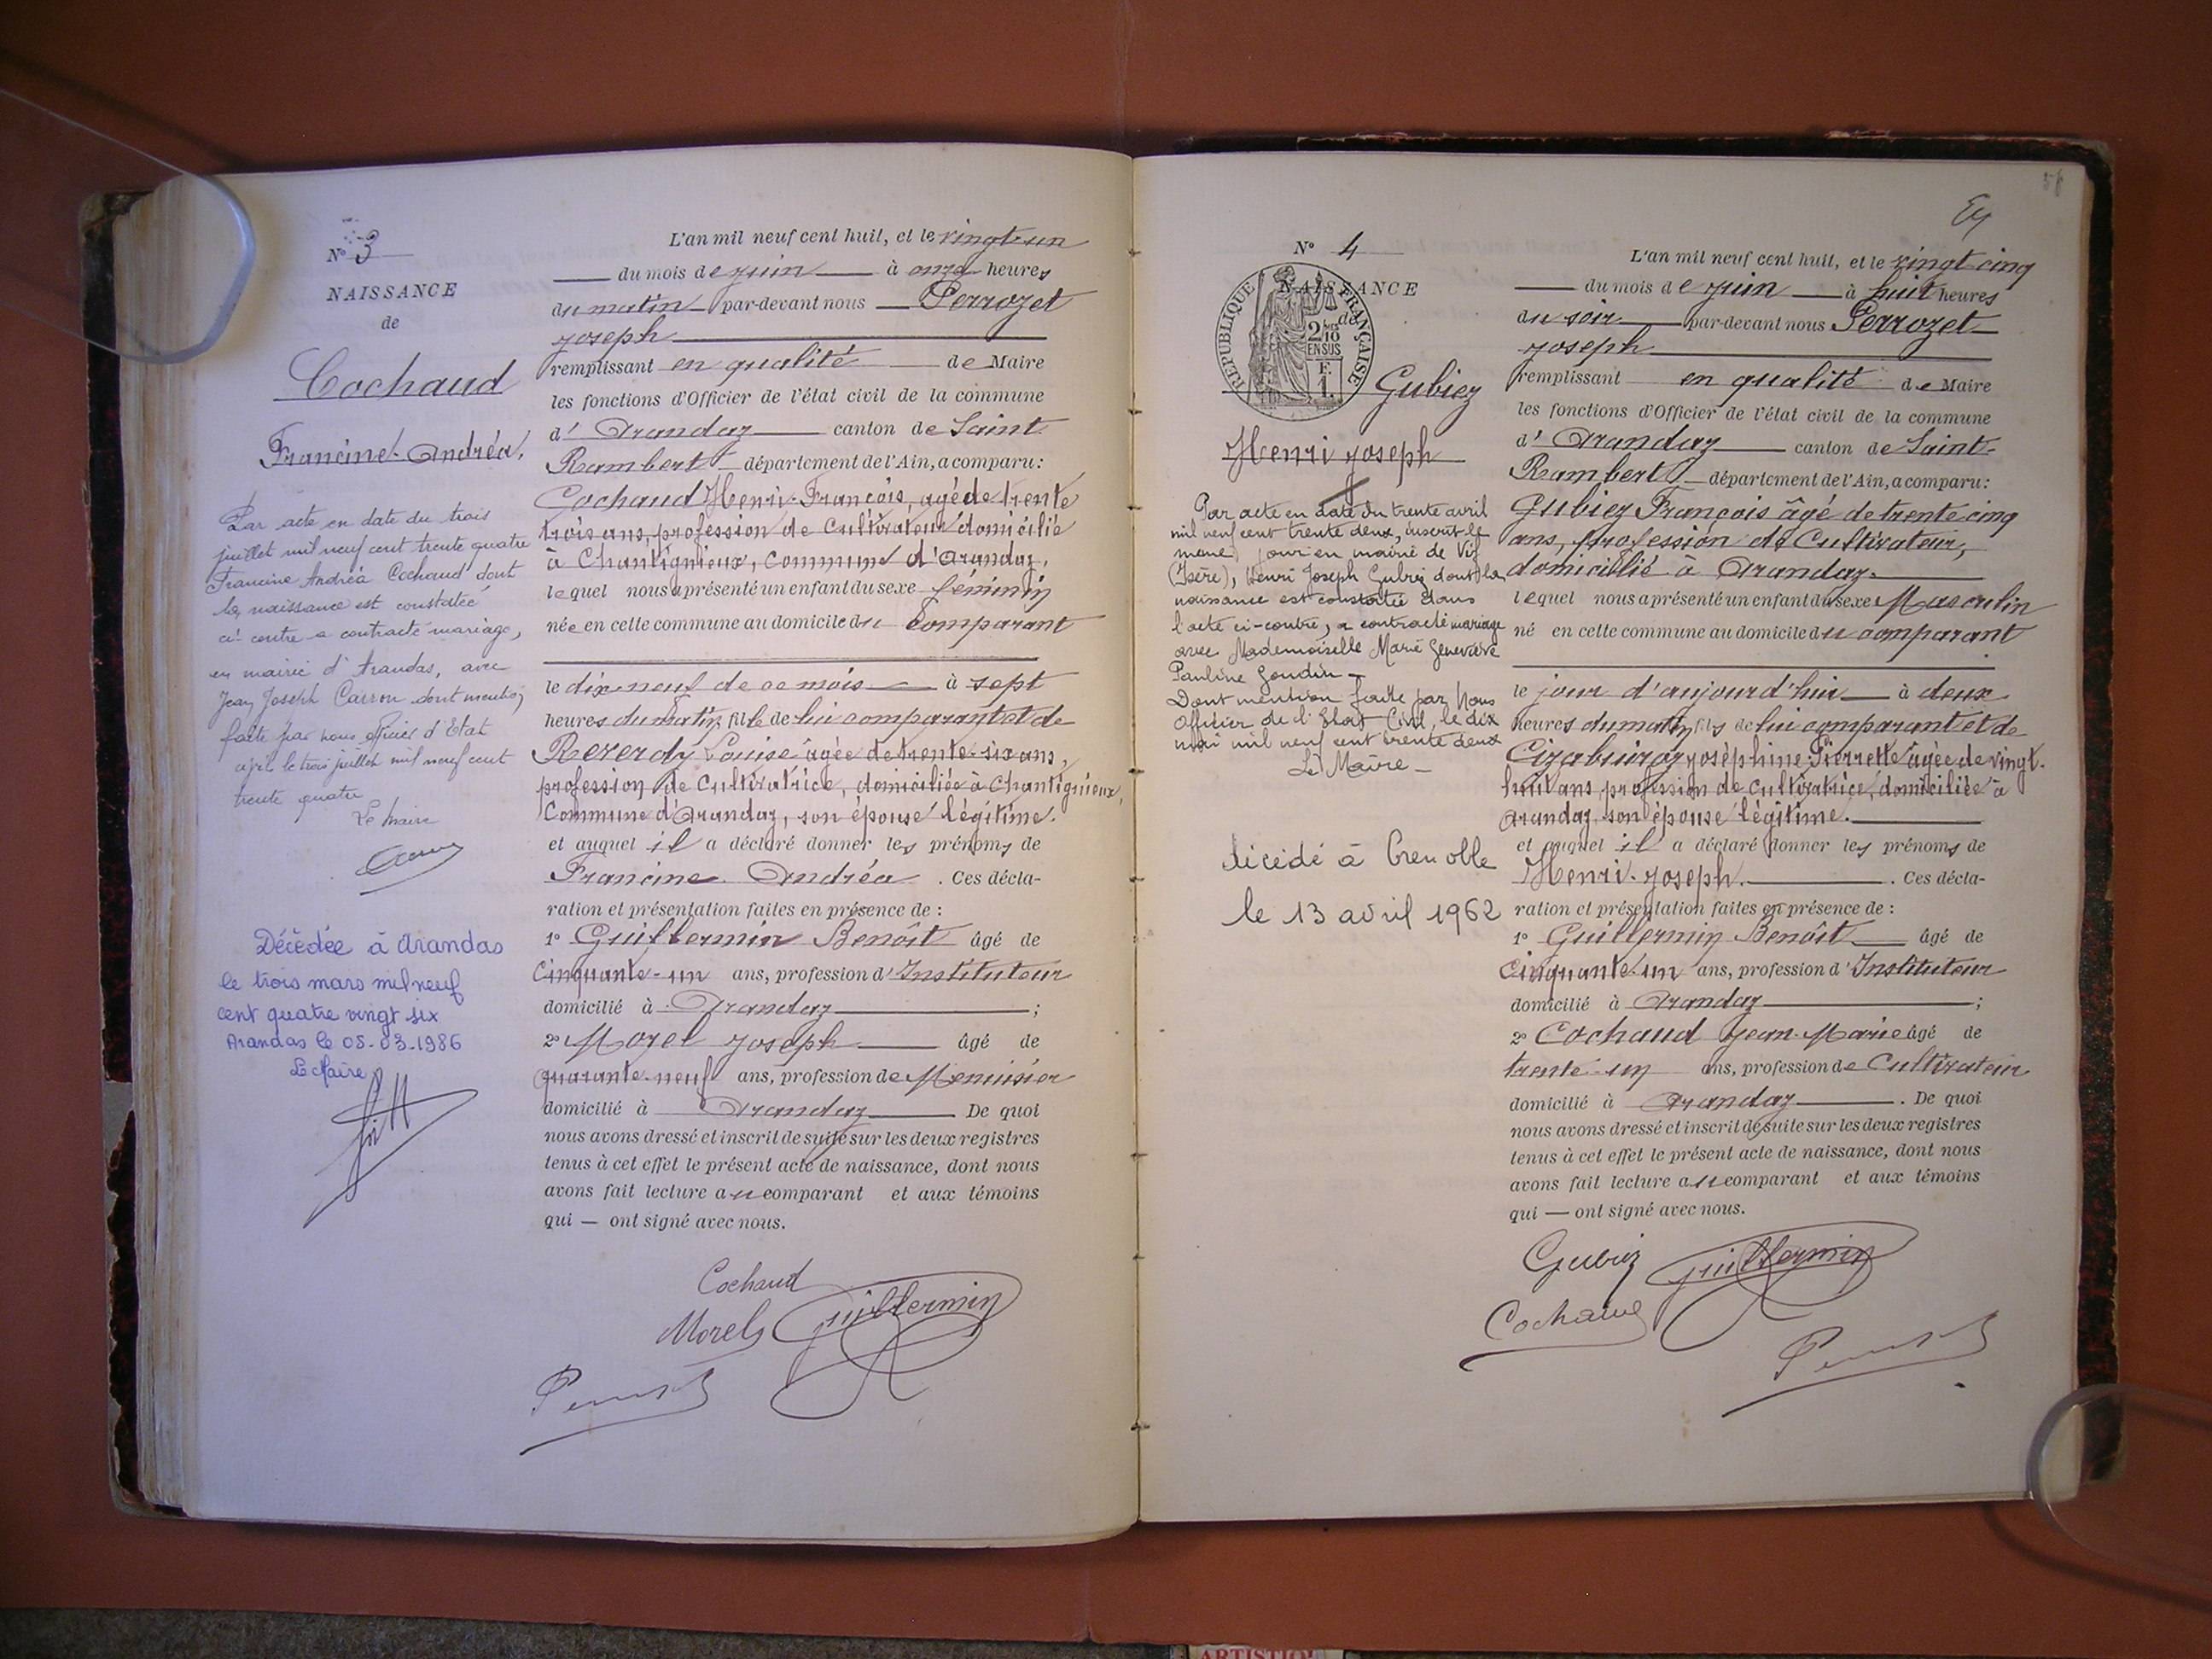 N° 3
NAISSANCE
de
Cochaud
Francine-Andréa.
Par acte en date du trois
juillet mil neuf cent trente quatre
Francine Andréa Cochaud dont
la naissance est constatée
ci-contre a contracté mariage,
en mairie d'Arandas, avec
Jean Joseph Carron dont mention
faite par nous officier d'Etat
civil le trois juillet mil neuf cent
trente quatre
Le Maire
Décédée à Arandas
le trois mars mil neuf
cent quatre vingt six
Arandas le 05-03-1986
Le Maire
L'an mil neuf cent huit, et le vingt-un
du mois de juin à onze heures
du matin par-devant nous Perrozet
Joseph
remplissant en qualité de Maire
les fonctions d'Officier de l'état civil de la commune
d'Arandaz canton de Saint-
Rambert département de l'Ain, a comparu:
Cochaud Henri-François, âgé de trente
trois ans, profession de Cultivateur domicilié
à Chantignieux, Commune d'Arandaz,
lequel nous a présenté un enfant du sexe féminin
née en cette commune au domicile du Comparant
le dix-neuf de ce mois à sept
heures du matin fille de lui comparant et de
Reverdy Louise âgée de trente-six ans,
profession de Cultivatrice, domiciliée à Chantignieux,
Commune d'Arandaz, son épouse légitime.
et auquel il a déclaré donner les prénoms de
Francine Andréa . Ces décla-
ration et présentation faites en présence de :
1° Guillermin Benoît âgé de
Cinquante-un ans, profession d'Instituteur
domicilié à Arandaz ;
2° Morel Joseph âgé de
quarante-neuf ans, profession de Menuisier
domicilié à Arandaz De quoi
nous avons dressé et inscrit de suite sur les deux registres
tenus à cet effet le présent acte de naissance, dont nous
avons fait lecture au comparant et aux témoins
qui — ont signé avec nous.
Cochaud
Morel Guillermin
N° 4
NAISSANCE
de
REPUBLIQUE FRANÇAISE
2/10
EN SUS
F.
1.
Gubiez
Henri Joseph
Par acte en date du trente avril
mil neuf cent trente deux, inscrit le
même jour en mairie de Vif
(Isère), Henri Joseph Gubiez dont la
naissance est constatée dans
l'acte ci-contre, a contracté mariage
avec Mademoiselle Marie Geneviève
Pauline Goudin -
Dont mention faite par Nous
Officier de l'Etat-Civil, le dix
mai mil neuf cent trente deux
Le Maire -
décédé à Grenoble
le 13 avril 1962
L'an mil neuf cent huit, et le vingt-cinq
du mois de juin à huit heures
du soir par-devant nous Perrozet
Joseph
remplissant en qualité de Maire
les fonctions d'Officier de l'état civil de la commune
d'Arandaz canton de Saint-
Rambert département de l'Ain, a comparu:
Gubiez François âgé de trente cinq
ans, profession de Cultivateur,
domicilié à Arandaz.
lequel nous a présenté un enfant du sexe Masculin
né en cette commune au domicile du comparant
le jour d'aujourd'hui à deux
heures du matin fils de lui comparant et de
Joséphine Pierrette âgée de vingt-
huit ans, profession de Cultivatrice, domiciliée à
Arandaz son épouse légitime.
et auquel il a déclaré donner les prénoms de
Henri-Joseph. . Ces décla-
ration et présentation faites en présence de :
1° Guillermin Benoît âgé de
Cinquante-un ans, profession d'Instituteur
domicilié à Arandaz ;
2° Cochaud Jean-Marie âgé de
trente-un ans, profession de Cultivateur
domicilié à Arandaz . De quoi
nous avons dressé et inscrit de suite sur les deux registres
tenus à cet effet le présent acte de naissance, dont nous
avons fait lecture au comparant et aux témoins
qui — ont signé avec nous.
Gubiez Guillermin
Cochaud